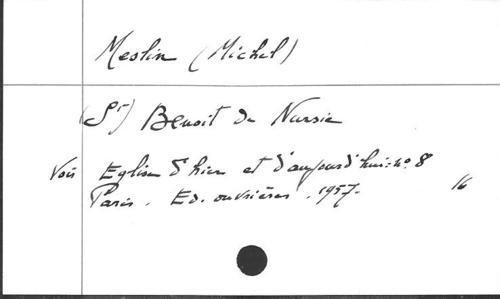 Meslin (Michel)
(St) Benoit de Nursie
Voir Eglise d'hier et d'aujourd'hui: no 8
Paris. Ed. ouvrières. 1957. 16